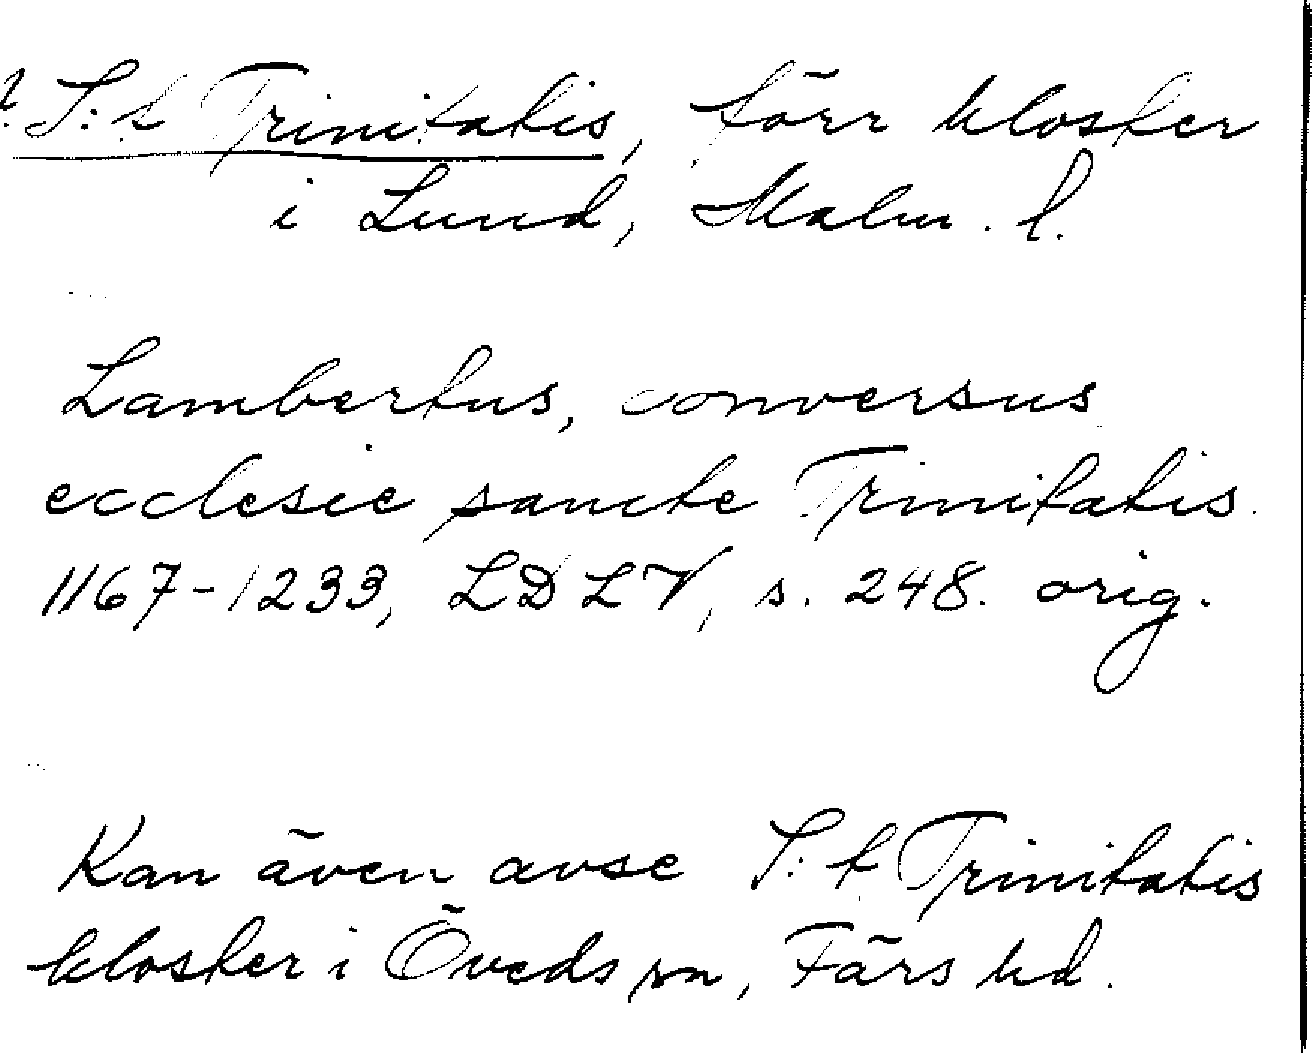 ? S:t Trinitatis, förr kloster
i Lund, Malm. l.
Lambertus, conversus
ecclesie sancte Trinitatis.
1167-1233, LDLV, s. 248. orig.
Kan även avse S:t Trinitatis
kloster i Öveds sn, Färs hd.